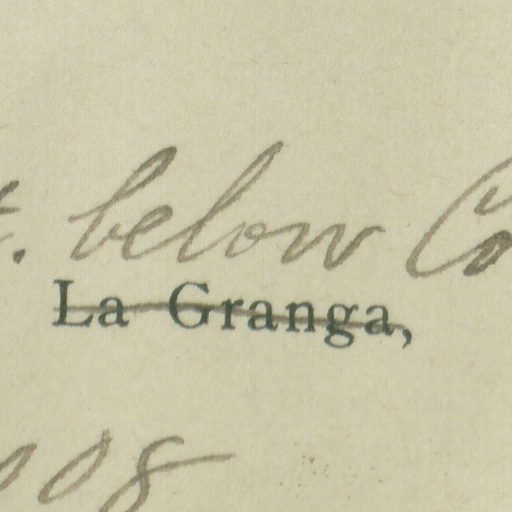 t. below Co
La Granga,
08